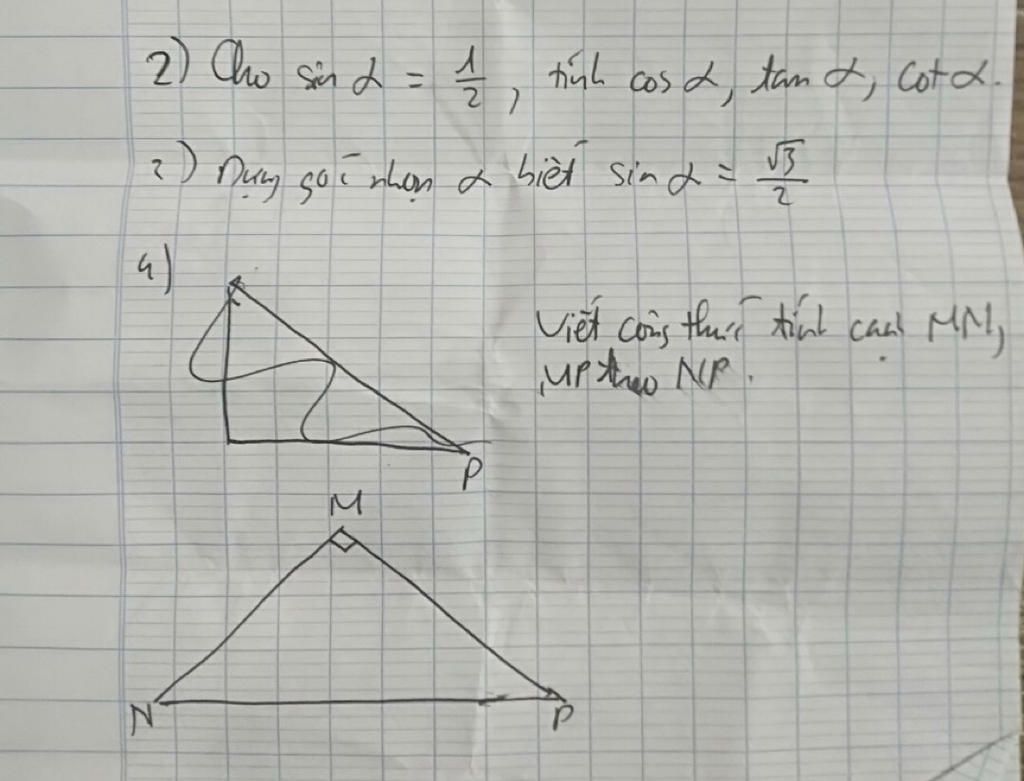 2) Cho sin α = 1/2, tính cos α, tan α, cot α.
2) Dựng góc nhọn α biết sin α = √3/2
4)
Viết công thức tính cạnh MN,
MP theo NP.
P
M
N P